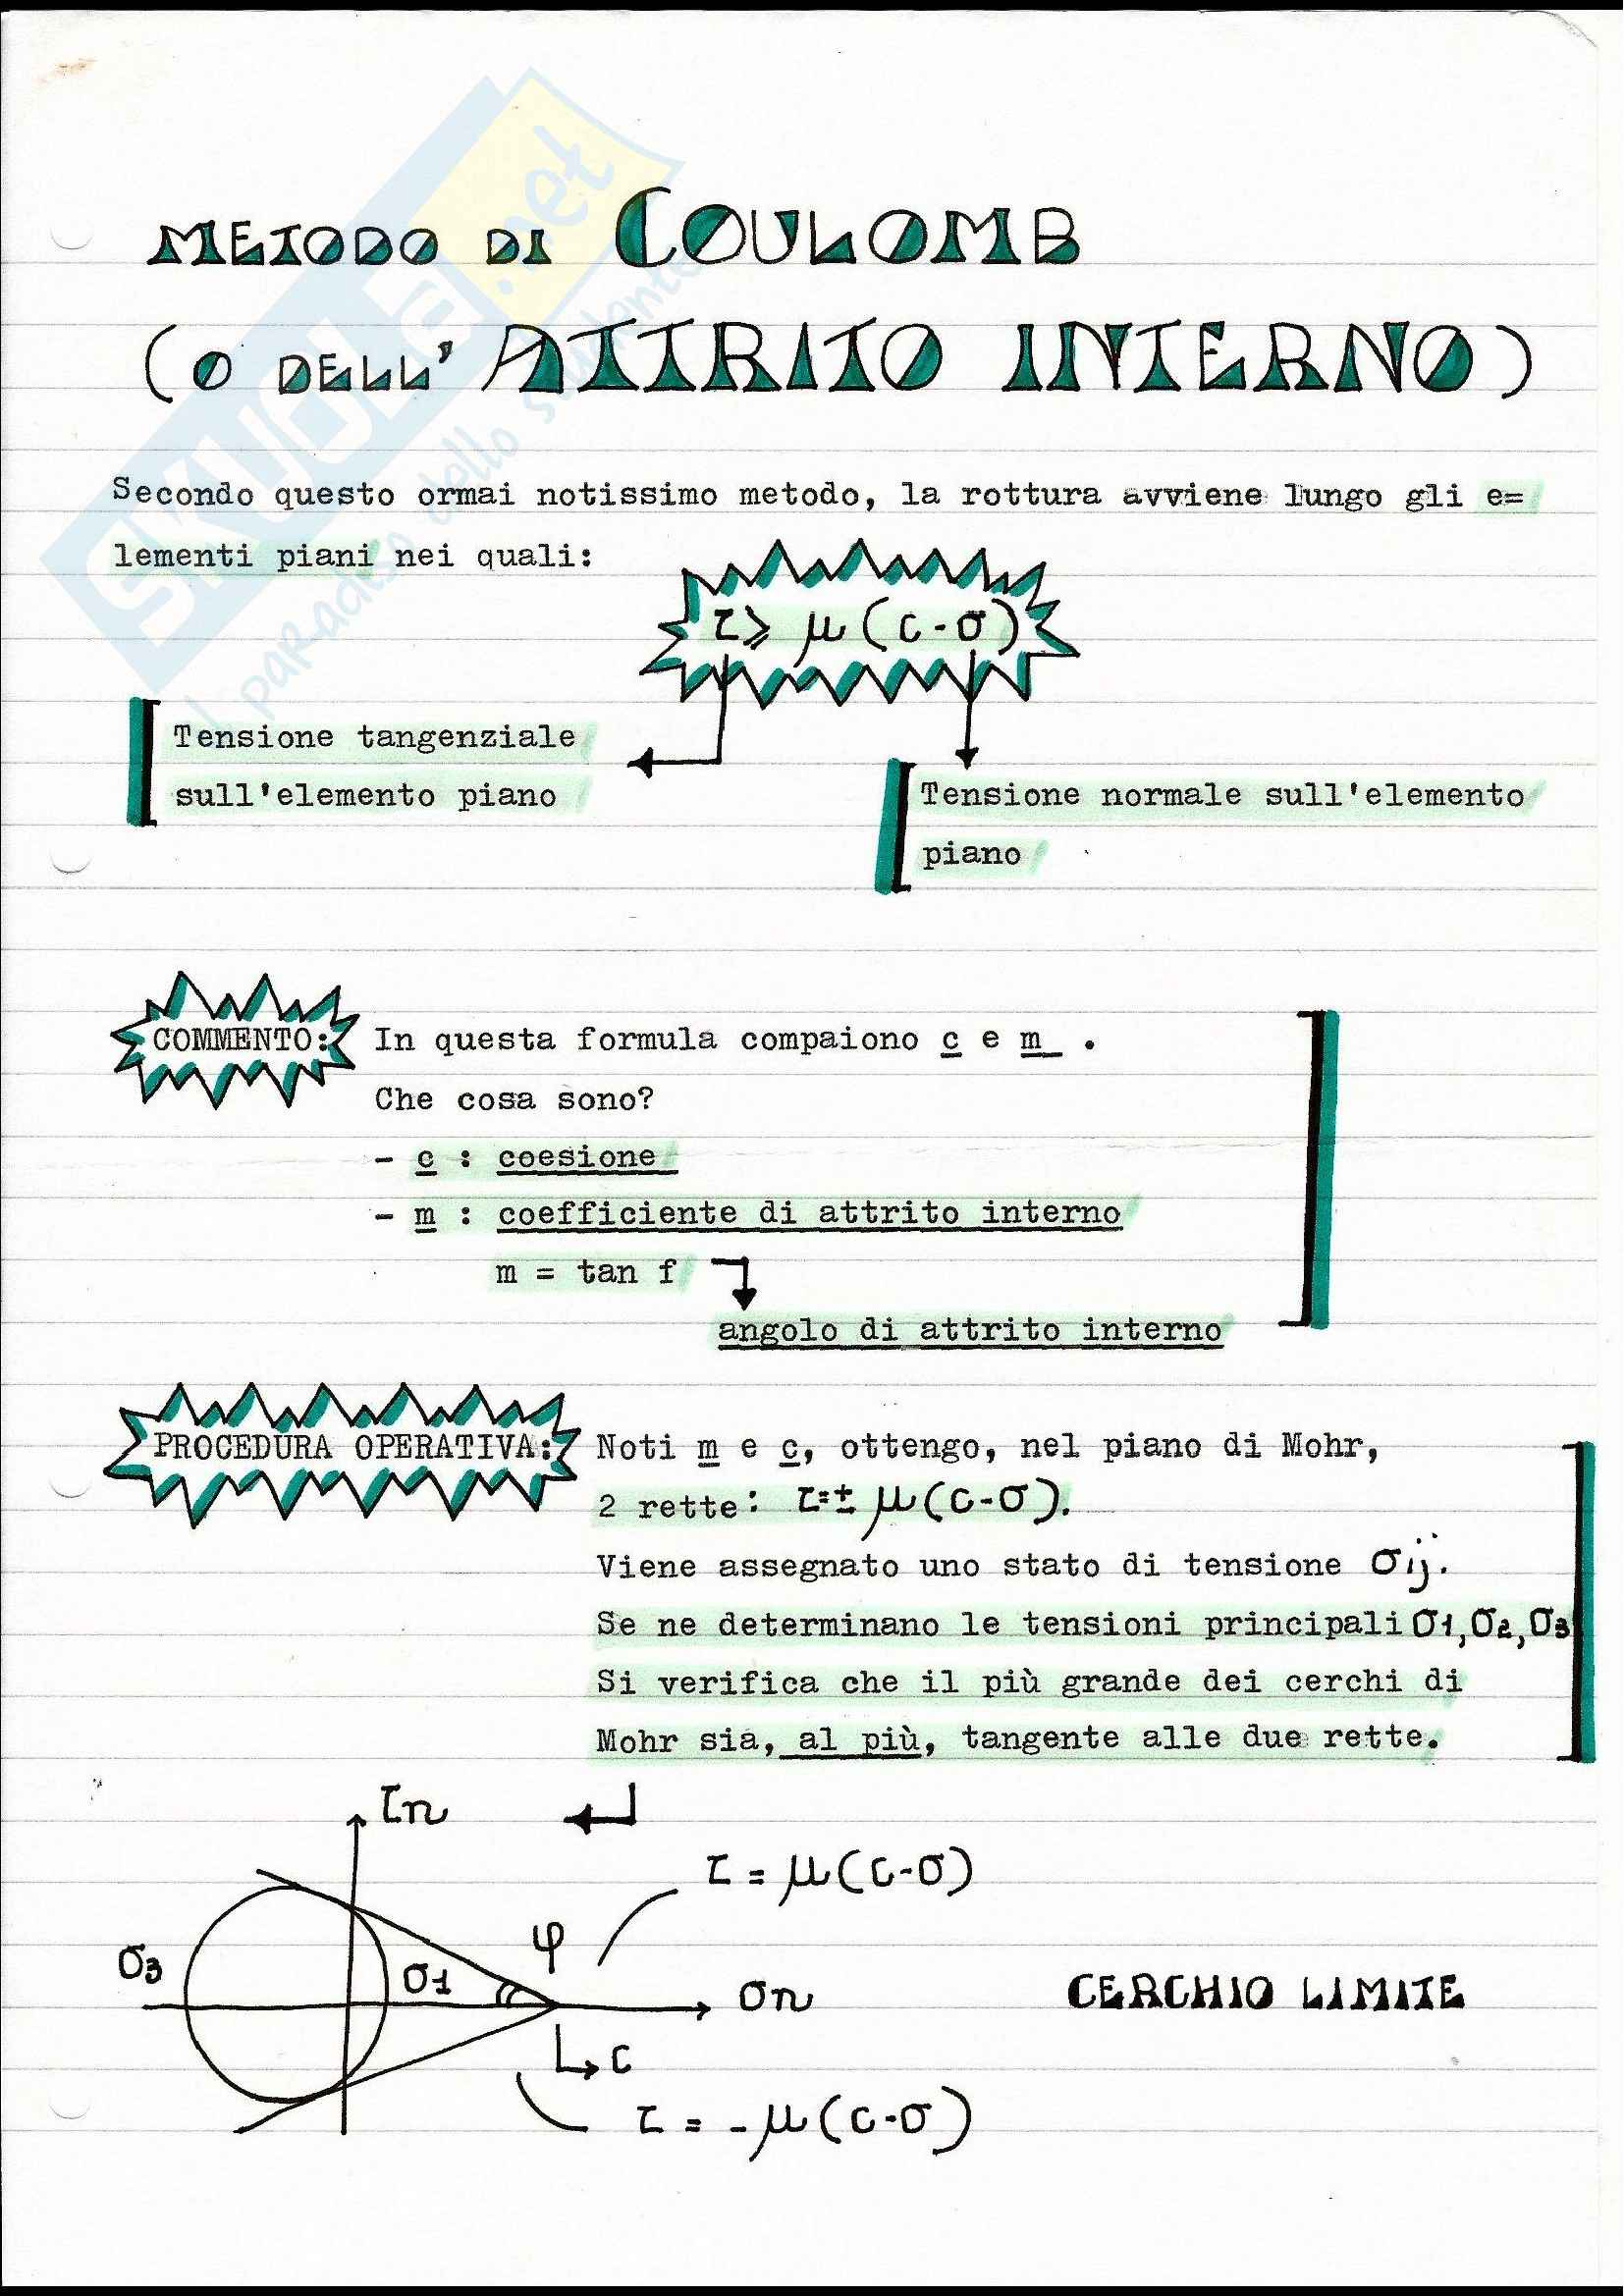 METODO DI COULOMB
(O DELL'ATTRITO INTERNO)
Secondo questo ormai notissimo metodo, la rottura avviene lungo gli e=
lementi piani nei quali:
τ ⩾ μ(c-σ)
Tensione tangenziale
sull'elemento piano
Tensione normale sull'elemento
piano
COMMENTO: In questa formula compaiono c e m .
Che cosa sono?
- c : coesione
- m : coefficiente di attrito interno
m = tan f
angolo di attrito interno
PROCEDURA OPERATIVA: Noti m e c, ottengo, nel piano di Mohr,
2 rette: τ=± μ(c-σ).
Viene assegnato uno stato di tensione σij.
Se ne determinano le tensioni principali σ1,σ2,σ3
Si verifica che il più grande dei cerchi di
Mohr sia, al più, tangente alle due rette.
τn
τ = μ(c-σ)
φ
σ3
σ1
σn
CERCHIO LIMITE
c
τ = -μ(c-σ)
SKUOLA.net
il paradiso dello studente